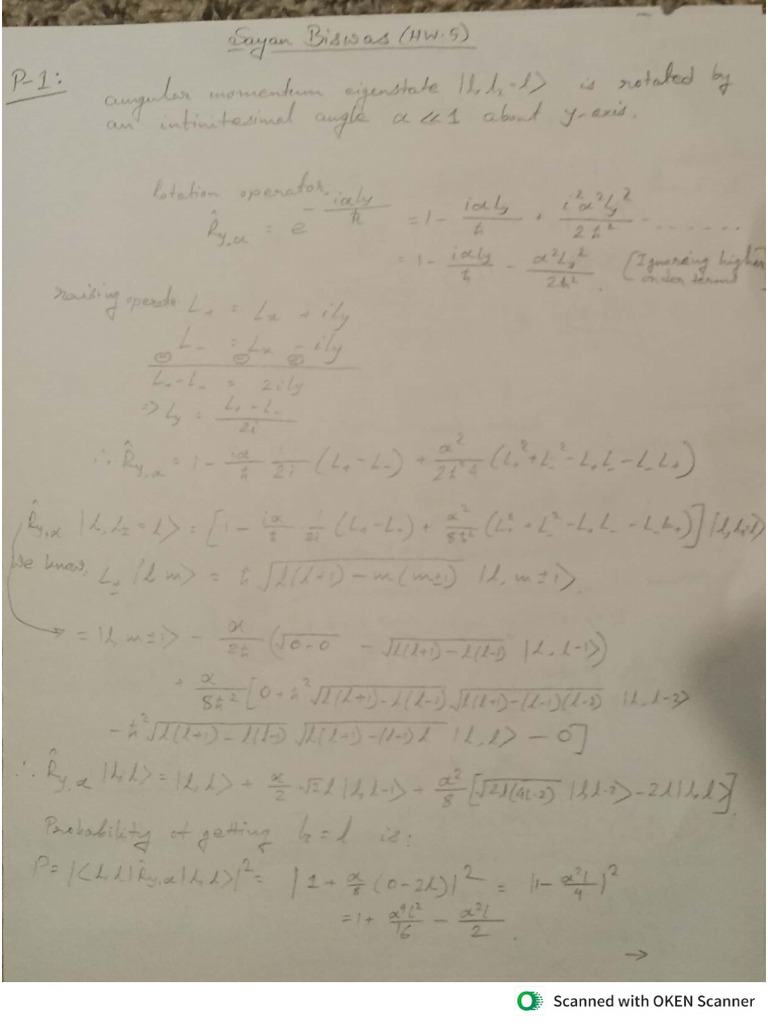 Sayan Biswas (HW-5)
P-1:
angular momentum eigenstate |l, l_z=l> is rotated by
an infinitesimal angle α << 1 about y-axis.
Rotation operator,
R̂_{y,α} = e^{-iαL_y/ħ} = 1 - iαL_y/ħ + i²α²L_y²/2ħ² .......
= 1 - iαL_y/ħ - α²L_y²/2ħ² [Ignoring higher order terms
raising operator L_+ = L_x + iL_y
L_- = L_x - iL_y
L_+ - L_- = 2iL_y
=> L_y = (L_+ - L_-)/2i
∴ R̂_{y,α} = 1 - iα/ħ 1/2i (L_+ - L_-) + α²/2ħ²4 (L_+² + L_-² - L_+L_- - L_-L_+)
R̂_{y,α} |l, l_z=l> = [1 - iα/ħ 1/2i (L_+ - L_-) + α²/8ħ² (L_+² + L_-² - L_+L_- - L_-L_+)] |l, l_z=l>
We know, L_± |l m> = ħ √(l(l+1) - m(m±1)) |l, m±1>
= |l, m±1> - α/2ħ (√(0-0) - √(l(l+1) - l(l-1)) |l, l-1>)
+ α/8ħ² [0 + ħ² √(l(l+1) - l(l-1)) √(l(l+1) - (l-1)(l-2)) |l, l-2>
- ħ² √(l(l+1) - l(l-1)) √(l(l+1) - (l-1)l) |l, l> - 0]
∴ R̂_{y,α} |l, l> = |l, l> + α/2 √2l |l, l-1> + α²/8 [√(2l(4l-2)) |l, l-2> - 2l |l, l>]
Probability of getting l_z = l is:
P = |<l, l| R̂_{y,α} |l, l>|² = |1 + α/8 (0 - 2l)|² = |1 - α²l/4|²
= 1 + α⁴l²/16 - α²l/2
→
Scanned with OKEN Scanner